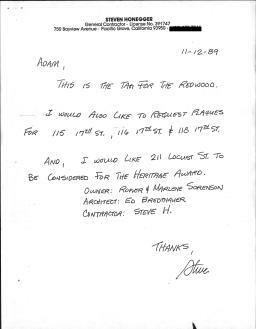 STEVEN HONEGGER
General Contractor - License No. 391747
750 Bayview Avenue - Pacific Grove, California 93950
11-12-89
ADAM,
THIS IS THE TAG FOR THE REDWOOD.
I WOULD ALSO LIKE TO REQUEST PLAQUES
FOR 115 17th ST., 116 17th ST. & 118 17th ST.
AND, I WOULD LIKE 211 LOCUST ST. TO
BE CONSIDERED FOR THE HERITAGE AWARD.
OWNER: & MARLENE SORENSON
ARCHITECT: ED
CONTRACTOR: STEVE H.
THANKS,
Steve